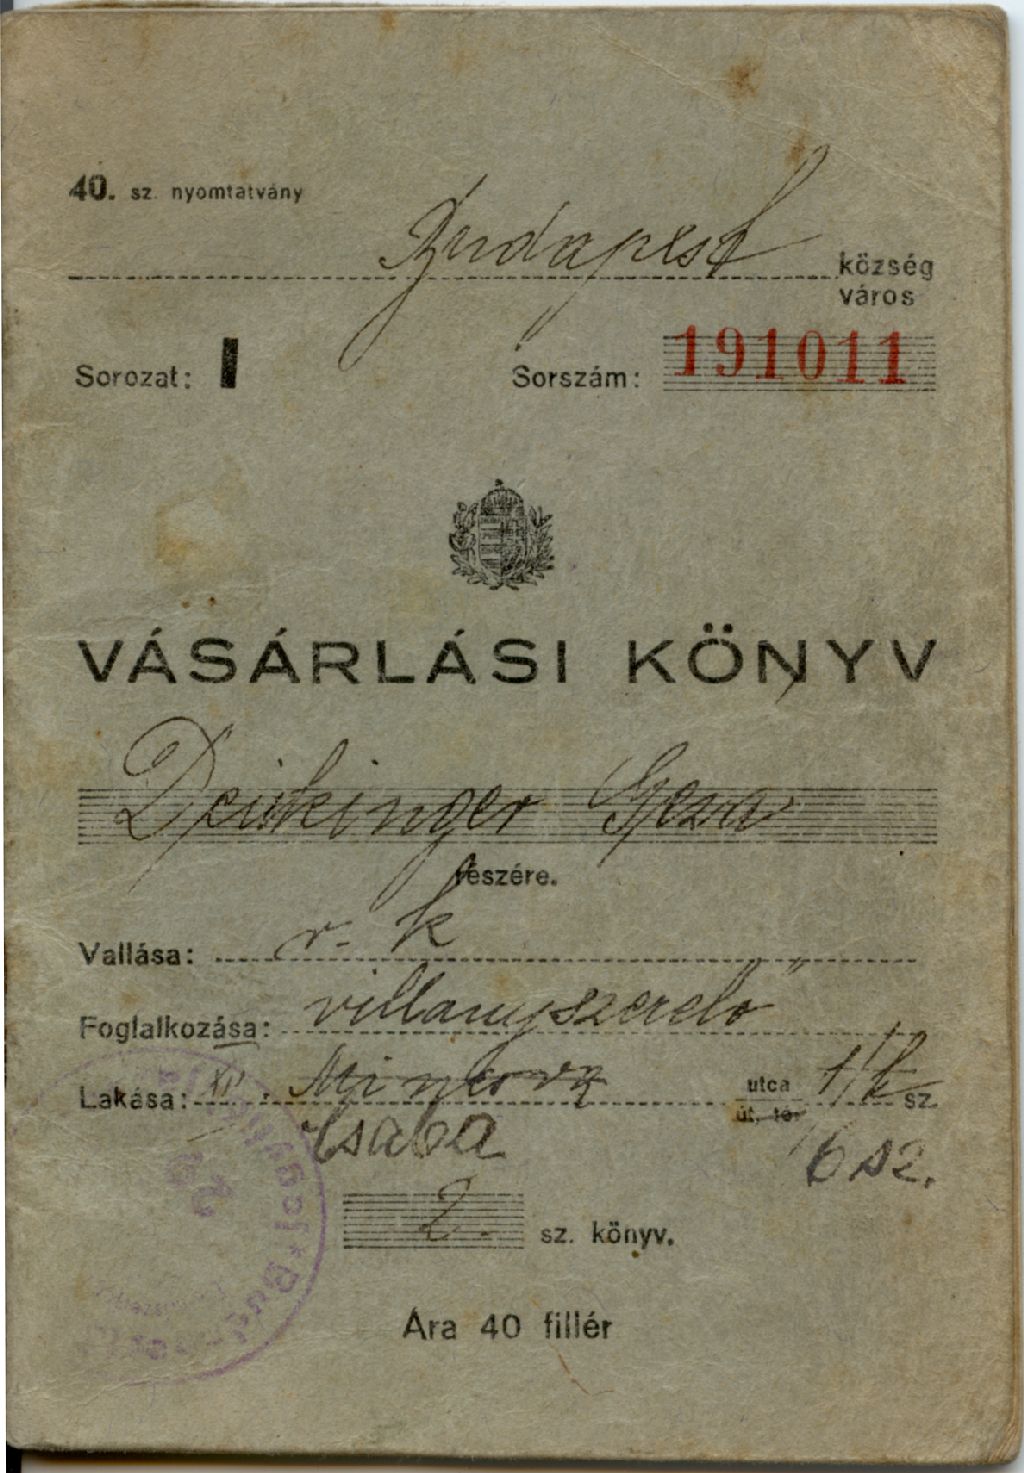 40. sz. nyomtatvány
Budapest község
város
Sorozat: I Sorszám: 191011
VÁSÁRLÁSI KÖNYV
Géza
részére.
Vallása: r. k
Foglalkozása: villanyszerelő
Lakása: XIV. utca 1/k sz.
út, tér
Csaba 6 sz.
2. sz. könyv.
Ára 40 fillér